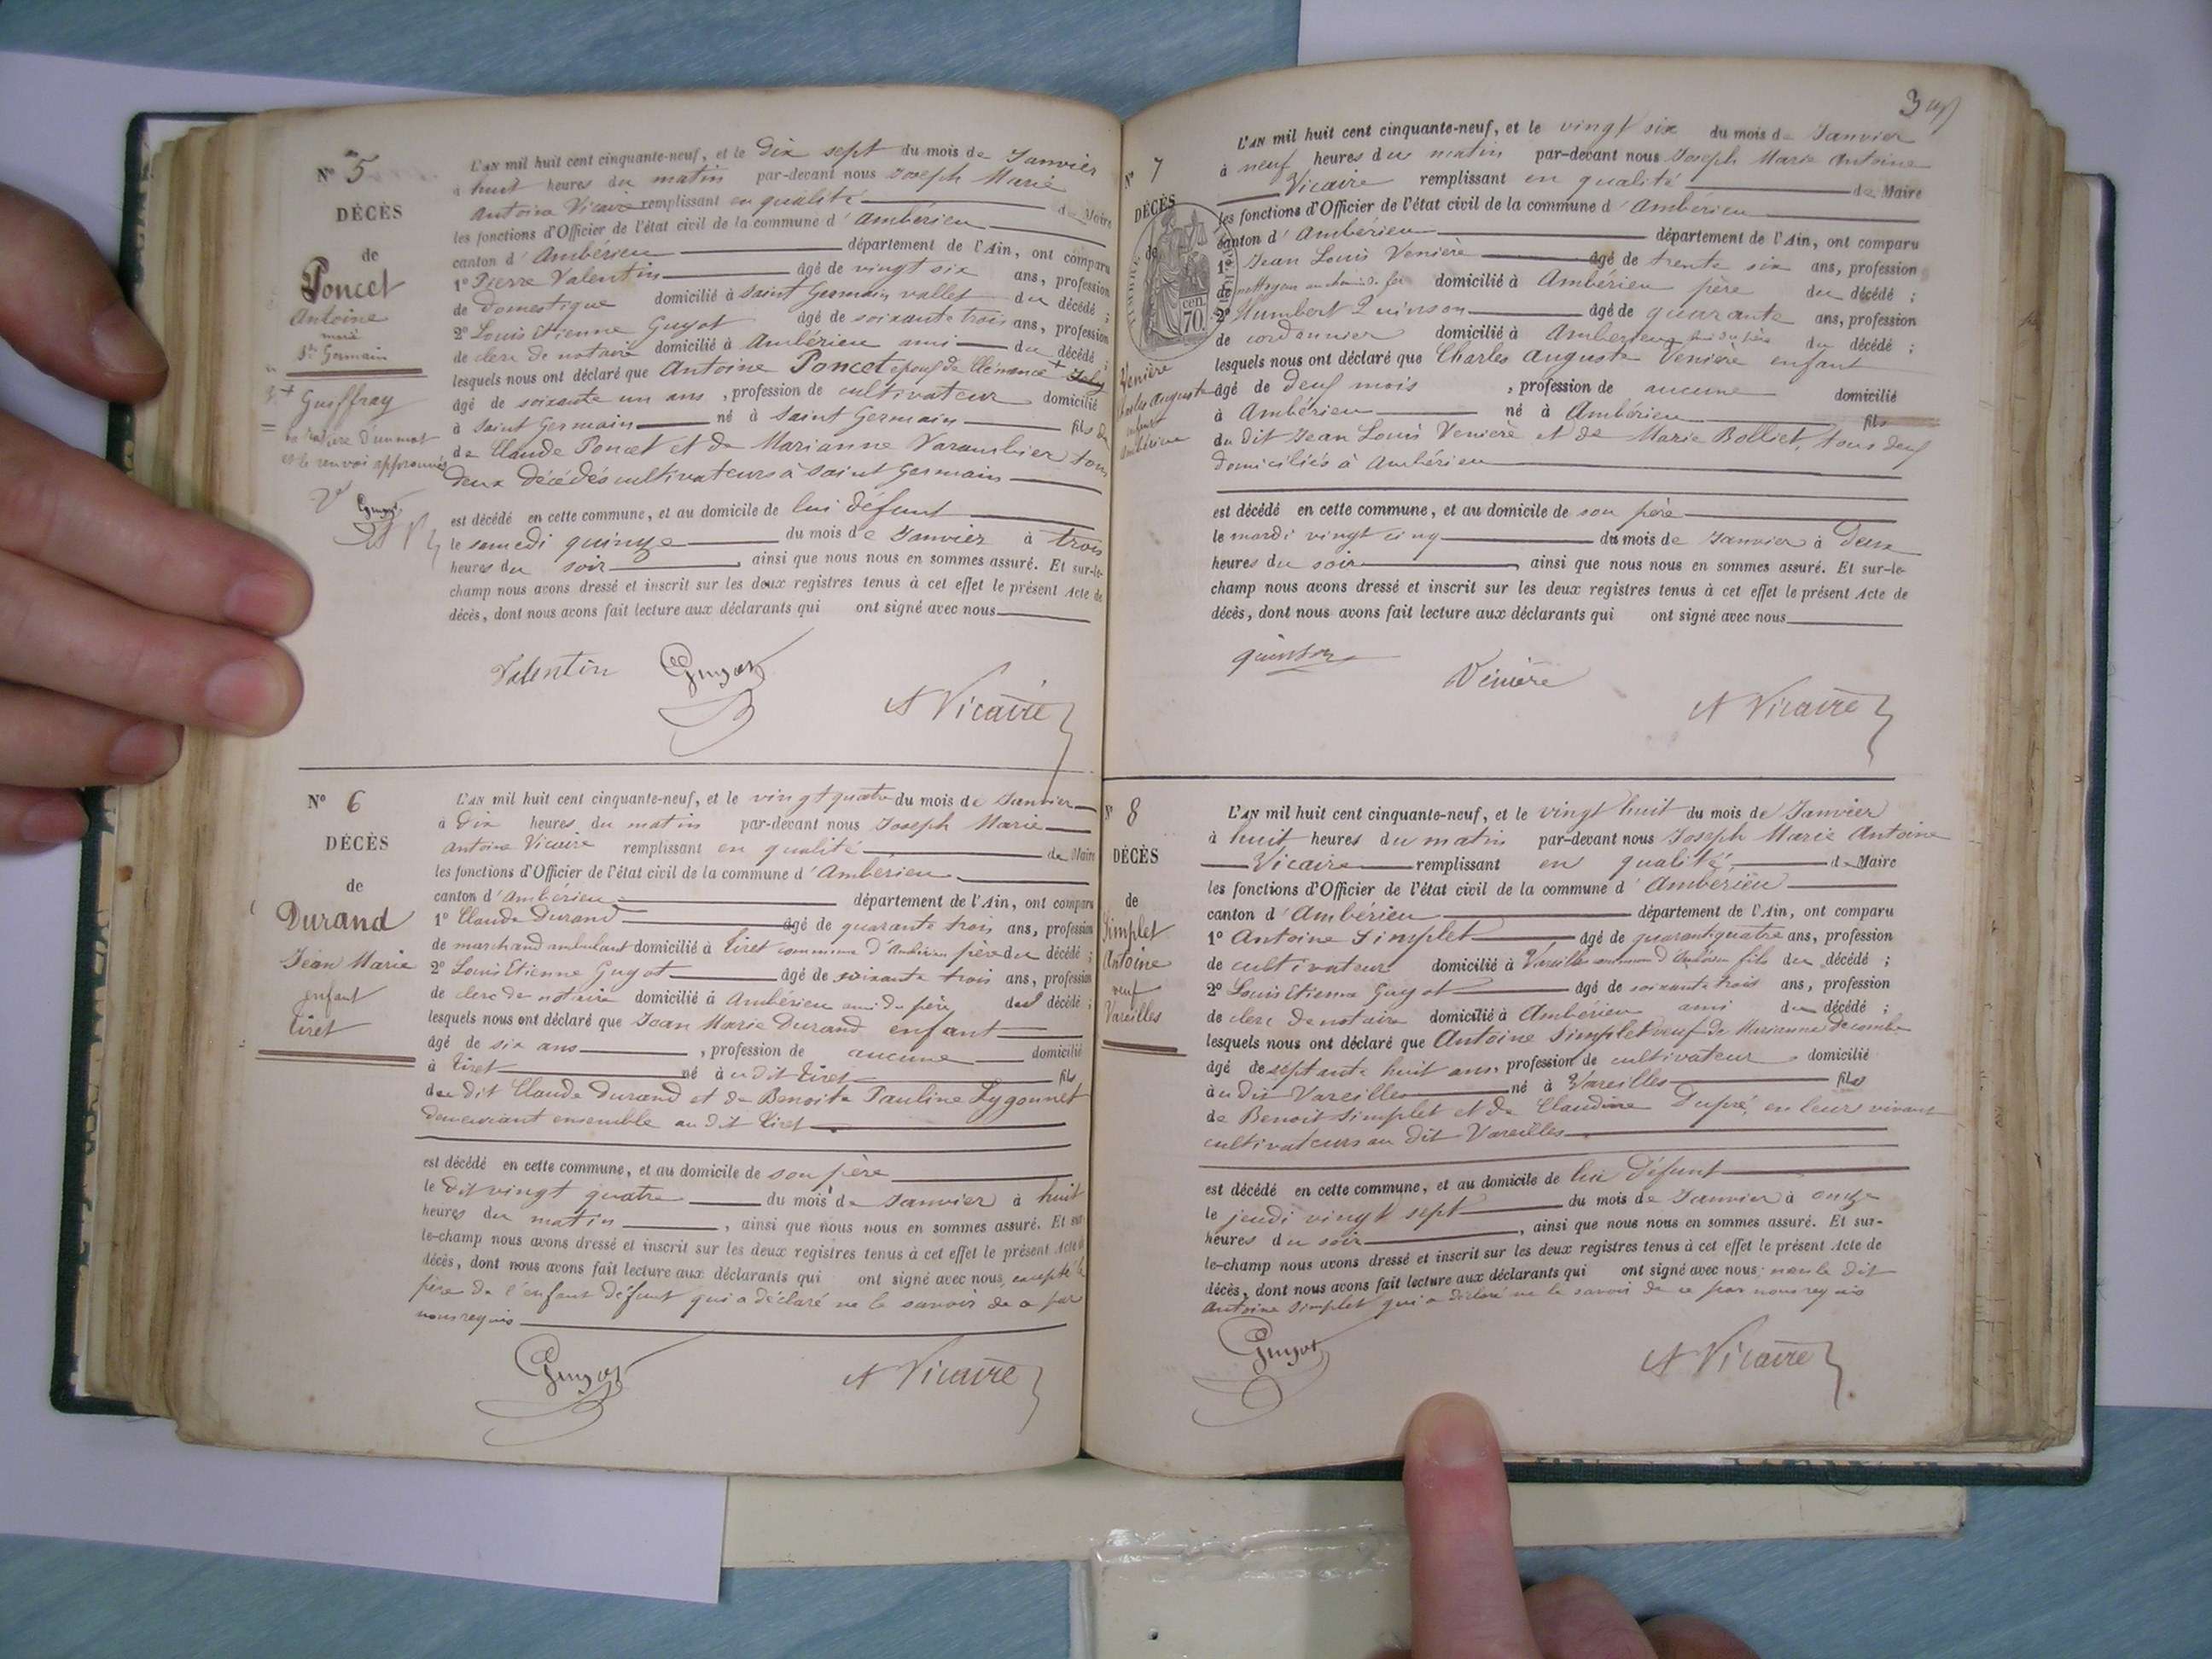 N° 5
DÉCÈS
de
Poncet
Antoine
marié
St Germain
+ Guiffray
la rature d'un mot
et le renvoi approuvés
L'AN mil huit cent cinquante-neuf, et le dix sept du mois de Janvier
à huit heures du matin par-devant nous Joseph Marie
Antoine Vicaire remplissant en qualité de Maire
les fonctions d'Officier de l'état civil de la commune d'Ambérieu
canton d'Ambérieu département de l'Ain, ont comparu
1° Pierre Valentin âgé de vingt six ans, profession
de domestique domicilié à Saint Germain vallet du décédé ;
2° Louis Etienne Guyot âgé de soixante trois ans, profession
de clerc de notaire domicilié à Ambérieu ami du décédé ;
lesquels nous ont déclaré que Antoine Poncet epoux de Clémence +
âgé de soixante un ans, profession de cultivateur domicilié
à Saint Germain né à Saint Germain fils
de Claude Poncet et de Marianne Varambier tous
deux décédés cultivateurs à Saint Germain
est décédé en cette commune, et au domicile de lui défunt
le samedi quinze du mois de Janvier à trois
heures du soir, ainsi que nous nous en sommes assuré. Et sur-le-
champ nous avons dressé et inscrit sur les deux registres tenus à cet effet le présent Acte de
décès, dont nous avons fait lecture aux déclarants qui ont signé avec nous
Valentin Guyot A Vicaire
N° 6
DÉCÈS
de
Durand
Jean Marie
enfant
Tiret
L'AN mil huit cent cinquante-neuf, et le vingt quatre du mois de Janvier
à dix heures du matin par-devant nous Joseph Marie
Antoine Vicaire remplissant en qualité de Maire
les fonctions d'Officier de l'état civil de la commune d'Ambérieu
canton d'Ambérieu département de l'Ain, ont comparu
1° Claude Durand âgé de quarante trois ans, profession
de marchand ambulant domicilié à Tiret commune d'Ambérieu père du décédé ;
2° Louis Etienne Guyot âgé de soixante trois ans, profession
de clerc de notaire domicilié à Ambérieu ami du père du décédé ;
lesquels nous ont déclaré que Jean Marie Durand enfant
âgé de six ans, profession de aucune domicilié
à Tiret né au dit Tiret fils
du dit Claude Durand et de Benoite Pauline Lygonnet
demeurant ensemble au dit Tiret
est décédé en cette commune, et au domicile de son père
le dit vingt quatre du mois de Janvier à huit
heures du matin, ainsi que nous nous en sommes assuré. Et sur-
le-champ nous avons dressé et inscrit sur les deux registres tenus à cet effet le présent Acte de
décès, dont nous avons fait lecture aux déclarants qui ont signé avec nous excepté le
père de l'enfant défunt qui a déclaré ne le savoir de ce par
nous requis
Guyot A Vicaire
3
N° 7
DÉCÈS
de
Venière
Charles Auguste
enfant
Ambérieu
cen.
70
L'AN mil huit cent cinquante-neuf, et le vingt six du mois de Janvier
à neuf heures du matin par-devant nous Joseph Marie Antoine
Vicaire remplissant en qualité de Maire
les fonctions d'Officier de l'état civil de la commune d'Ambérieu
canton d'Ambérieu département de l'Ain, ont comparu
1° Jean Louis Venière âgé de trente six ans, profession
de domicilié à Ambérieu père du décédé ;
2° Humbert Quinson âgé de quarante ans, profession
de cordonnier domicilié à Ambérieu ami du père du décédé ;
lesquels nous ont déclaré que Charles Auguste Venière enfant
âgé de deux mois, profession de aucune domicilié
à Ambérieu né à Ambérieu fils
du dit Jean Louis Venière et de Marie Bolliet, tous deux
domiciliés à Ambérieu
est décédé en cette commune, et au domicile de son père
le mardi vingt cinq du mois de Janvier à deux
heures du soir, ainsi que nous nous en sommes assuré. Et sur-le-
champ nous avons dressé et inscrit sur les deux registres tenus à cet effet le présent Acte de
décès, dont nous avons fait lecture aux déclarants qui ont signé avec nous
quinson Venière A Vicaire
N° 8
DÉCÈS
de
Simplet
Antoine
veuf
Vareilles
L'AN mil huit cent cinquante-neuf, et le vingt huit du mois de Janvier
à huit heures du matin par-devant nous Joseph Marie Antoine
Vicaire remplissant en qualité de Maire
les fonctions d'Officier de l'état civil de la commune d'Ambérieu
canton d'Ambérieu département de l'Ain, ont comparu
1° Antoine Simplet âgé de quarante quatre ans, profession
de cultivateur domicilié à Vareilles commune d'Ambérieu fils du décédé ;
2° Louis Etienne Guyot âgé de soixante trois ans, profession
de clerc de notaire domicilié à Ambérieu ami du décédé ;
lesquels nous ont déclaré que Antoine Simplet veuf de Marianne Decombe
âgé de septante huit ans, profession de cultivateur domicilié
au dit Vareilles né à Vareilles fils
de Benoit Simplet et de Claudine Dupré, en leurs vivant
cultivateurs au dit Vareilles
est décédé en cette commune, et au domicile de lui défunt
le jeudi vingt sept du mois de Janvier à onze
heures du soir, ainsi que nous nous en sommes assuré. Et sur-
le-champ nous avons dressé et inscrit sur les deux registres tenus à cet effet le présent Acte de
décès, dont nous avons fait lecture aux déclarants qui ont signé avec nous; non le dit
Antoine Simplet qui a déclaré ne le savoir de ce par nous requis
Guyot A Vicaire